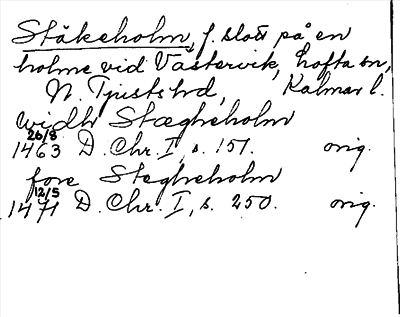 Stäkeholm, f. slott på en
holme vid Västervik, Lofta sn,
N. Tjusts hd, Kalmar l.
widh Stægheholm
26/8
1463 D. Chr. I, s. 151. orig.
fore Stegheholm
12/5
1471 D. Chr. I, s. 250. orig.